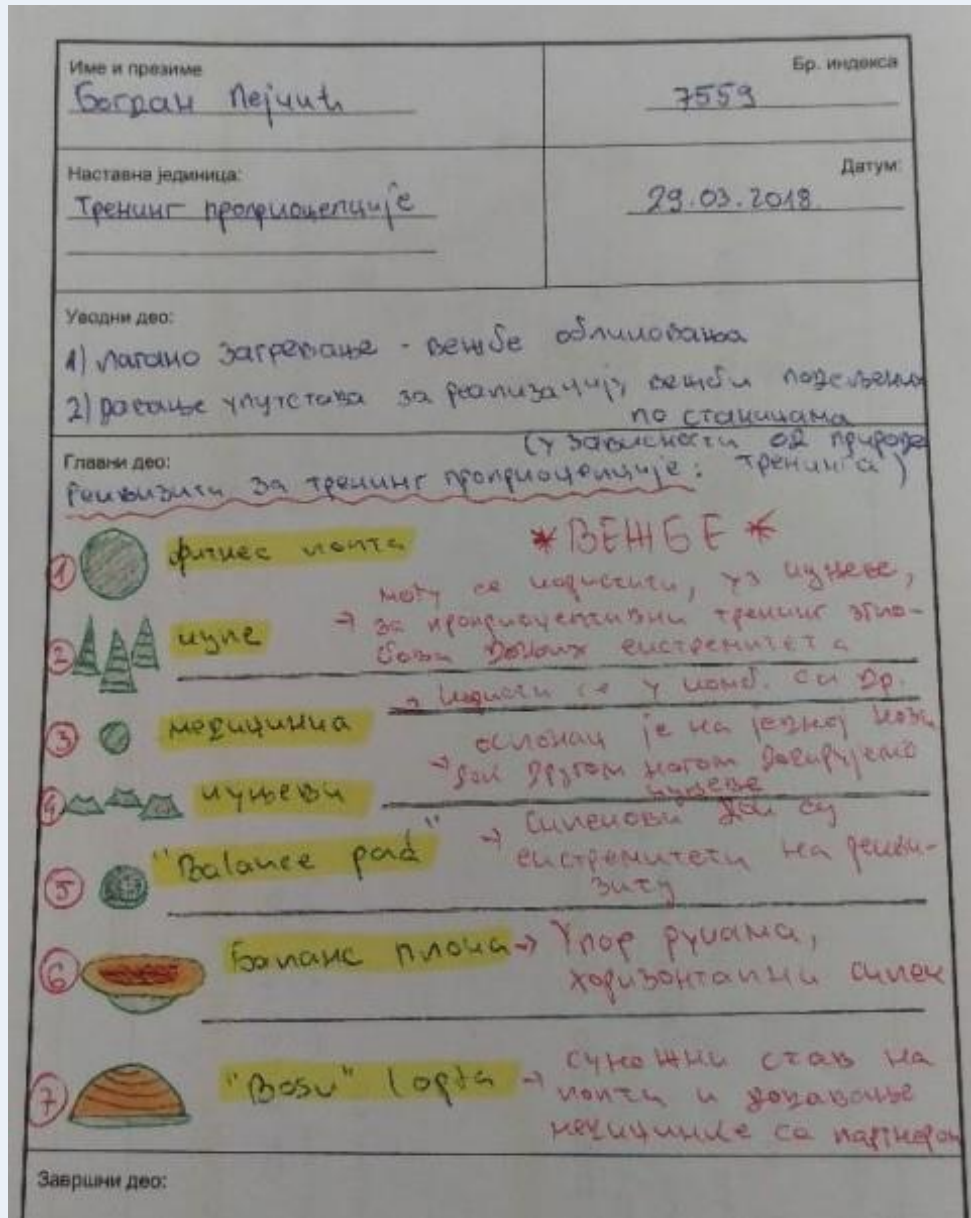 Име и презиме
Богдан Пејчић
Бр. индекса
7559
Наставна јединица:
Тренинг проприоцепције
Датум:
29.03.2018.
Уводни део:
1) лагано загревање - вежбе обликовања
2) давање упутстава за реализацију вежби подељених
по станицама
(у зависности од природе
тренинга)
Главни део:
Реквизити за тренинг проприоцепције:
* ВЕЖБЕ *
1 фитнес лопта
2 купе
→ могу се користити, уз чуњеве,
за проприоцептивни тренинг згло-
бова доњих екстремитета
3 медицинка
→ користи се у комб. са др.
4 чуњеви
→ ослонац је на једној нози
док другом ногом додирујемо
чуњеве
5 "Balance pad"
→ склекови док су
екстремитети на рекви-
зиту
6 Баланс плоча → Упор рукама,
хоризонтални склек
7 "Bosu" lopta → суножни став на
лопти и додавање
медицинке са партнером
Завршни део: